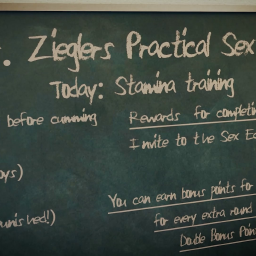 . Zieglers Practical Sex
Today: Stamina training
before cumming
Rewards for completin
Invite to the Sex Ed
ys)
unished!)
You can earn bonus points for
for every extra round
Double Bonus Poin